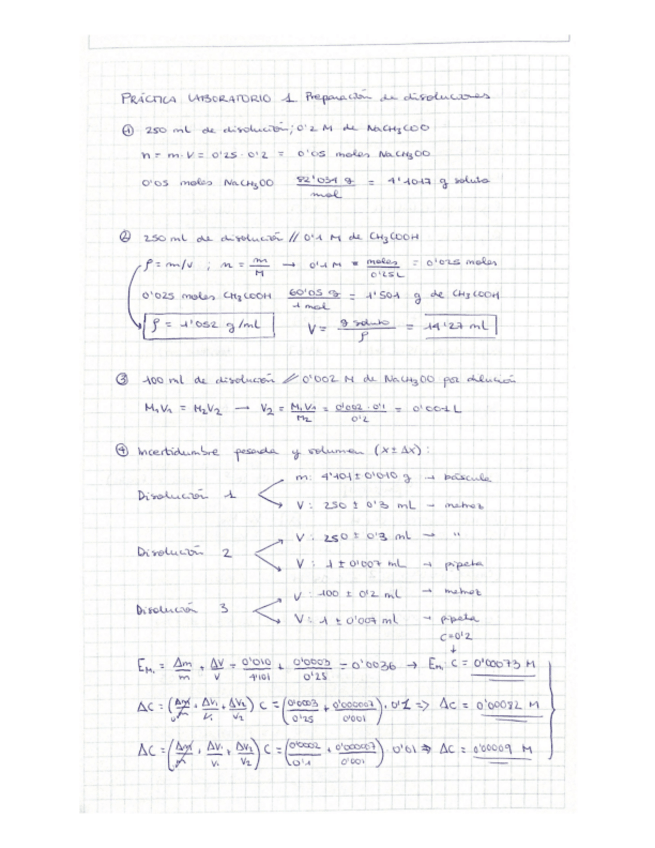 PRÁCTICA LABORATORIO 1. Preparación de disoluciones
① 250 ml de disolución; 0'2 M de NaCH₃COO
n = m·V = 0'25 · 0'2 = 0'05 moles NaCH₃OO
0'05 moles NaCH₃OO 82'034 g / mol = 4'1017 g soluto
② 250 ml de disolución // 0'1 M de CH₃COOH
ρ = m/v ; n = m/M → 0'1 M = moles / 0'25L = 0'025 moles
0'025 moles CH₃COOH 60'05 g / 1 mol = 1'501 g de CH₃COOH
ρ = 1'052 g/mL V = g soluto / ρ = 14'27 mL
③ 100 ml de disolución // 0'002 M de NaCH₃OO por dilución
M₁V₁ = M₂V₂ → V₂ = M₁V₁ / M₂ = 0'002 · 0'1 / 0'2 = 0'001 L
④ Incertidumbre pesada y volumen (x ± Δx):
m: 4'101 ± 0'010 g → báscula
Disolución 1
V: 250 ± 0'3 mL → matraz
V: 250 ± 0'3 mL → "
Disolución 2
V: 1 ± 0'007 mL → pipeta
V: 100 ± 0'2 mL → matraz
Disolución 3
V: 1 ± 0'007 mL → pipeta
C=0'2
↓
Δm/m + ΔV/V = 0'010/4'101 + 0'0003/0'25 = 0'0036 → C = 0'00073 M
ΔC = (Δm/m + ΔV₁/V₁ + ΔV₂/V₂) C = (0'0003/0'25 + 0'000007/0'001) · 0'1 ⇒ ΔC = 0'00082 M
ΔC = (Δm/m + ΔV₁/V₁ + ΔV₂/V₂) C = (0'0002/0'1 + 0'000007/0'001) 0'01 ⇒ ΔC = 0'00009 M